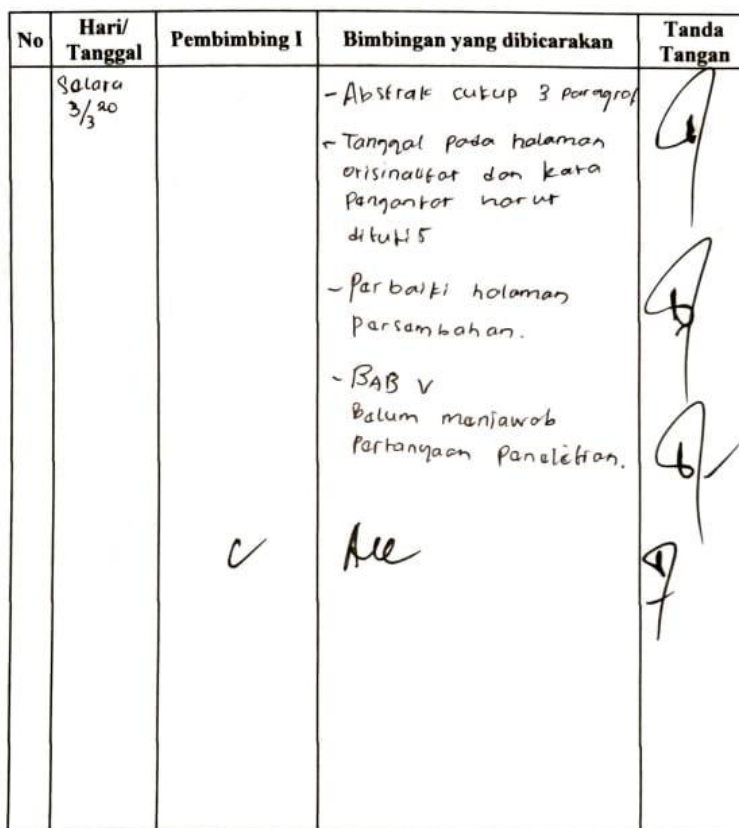 No
Hari/
Tanggal
Pembimbing I
Bimbingan yang dibicarakan
Tanda
Tangan
Selasa
3/3 20
- Abstrak cukup 3 paragraf
- Tanggal pada halaman
orisinalitas dan kata
pengantar harus
ditulis
- Perbaiki halaman
persembahan.
- BAB V
Belum menjawab
Pertanyaan Penelitian.
Acc